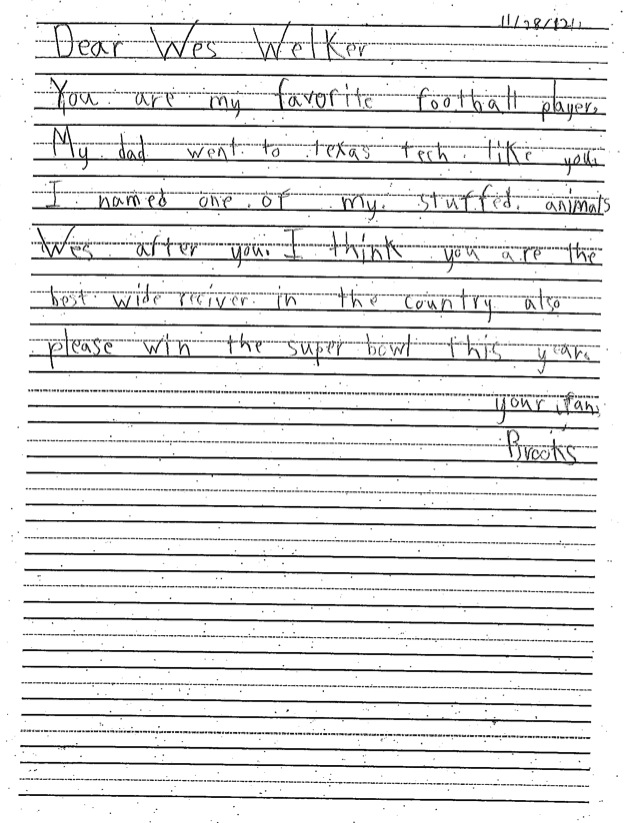 11/28/12
Dear Wes Welker
You are my favorite football player.
My dad went to texas tech like you.
I named one of my stuffed animals
Wes after you. I think you are the
best wide reciver in the country also
please win the super bowl this year.
your fan,
Brooks